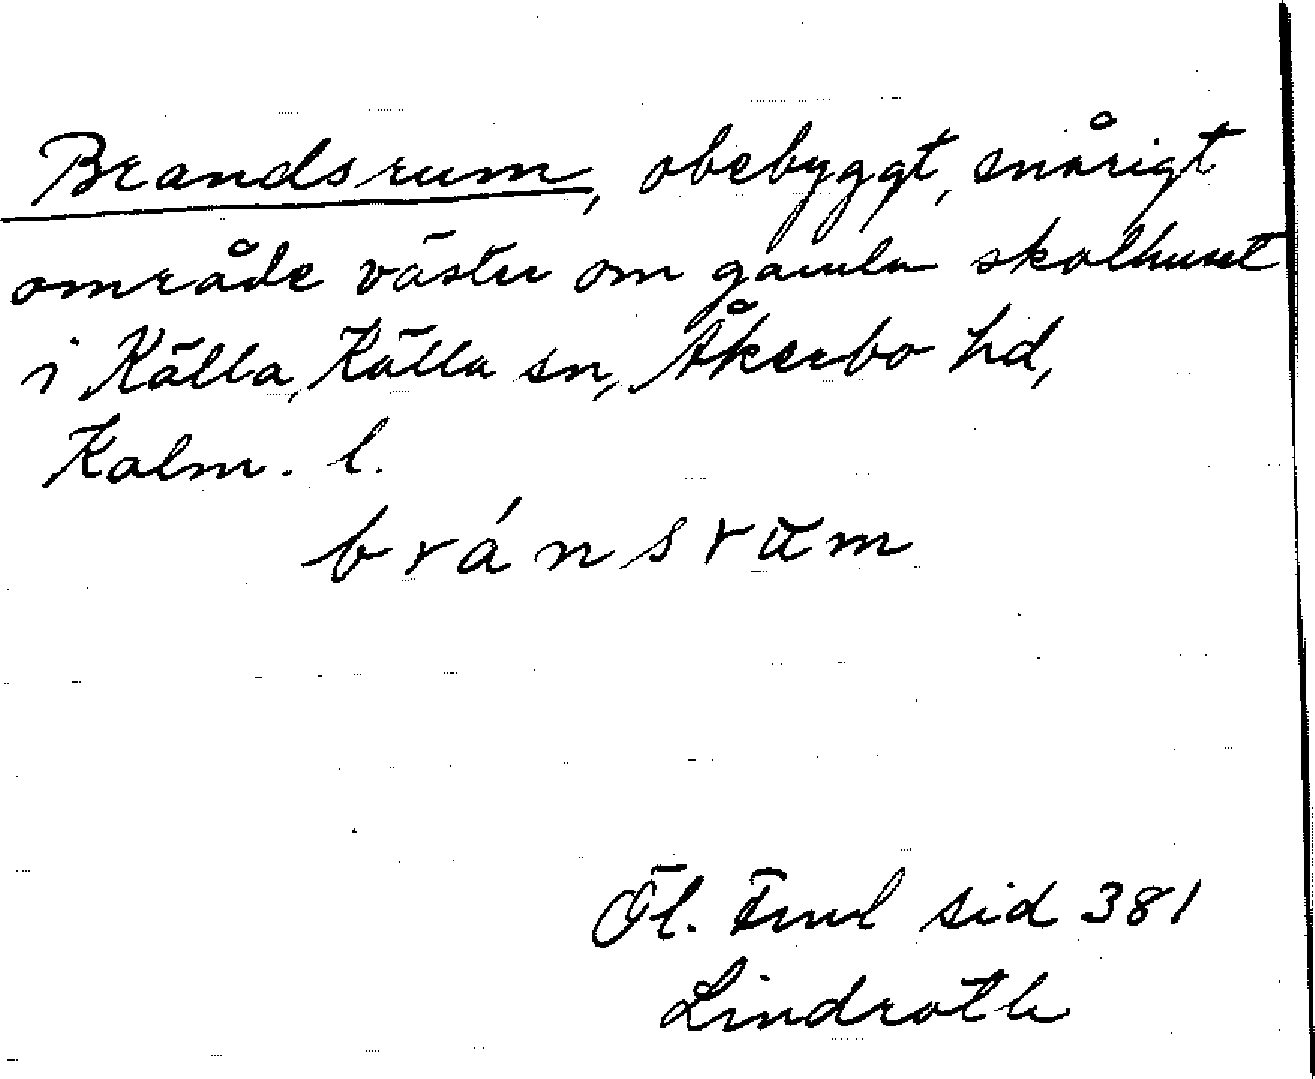 Brandsrum, obebyggt, snårigt
område väster om gamla skolhuset
i Källa, Källa sn, Åkerbo hd,
Kalm. l.
bránsrum
Öl. sid 381
Lindroth